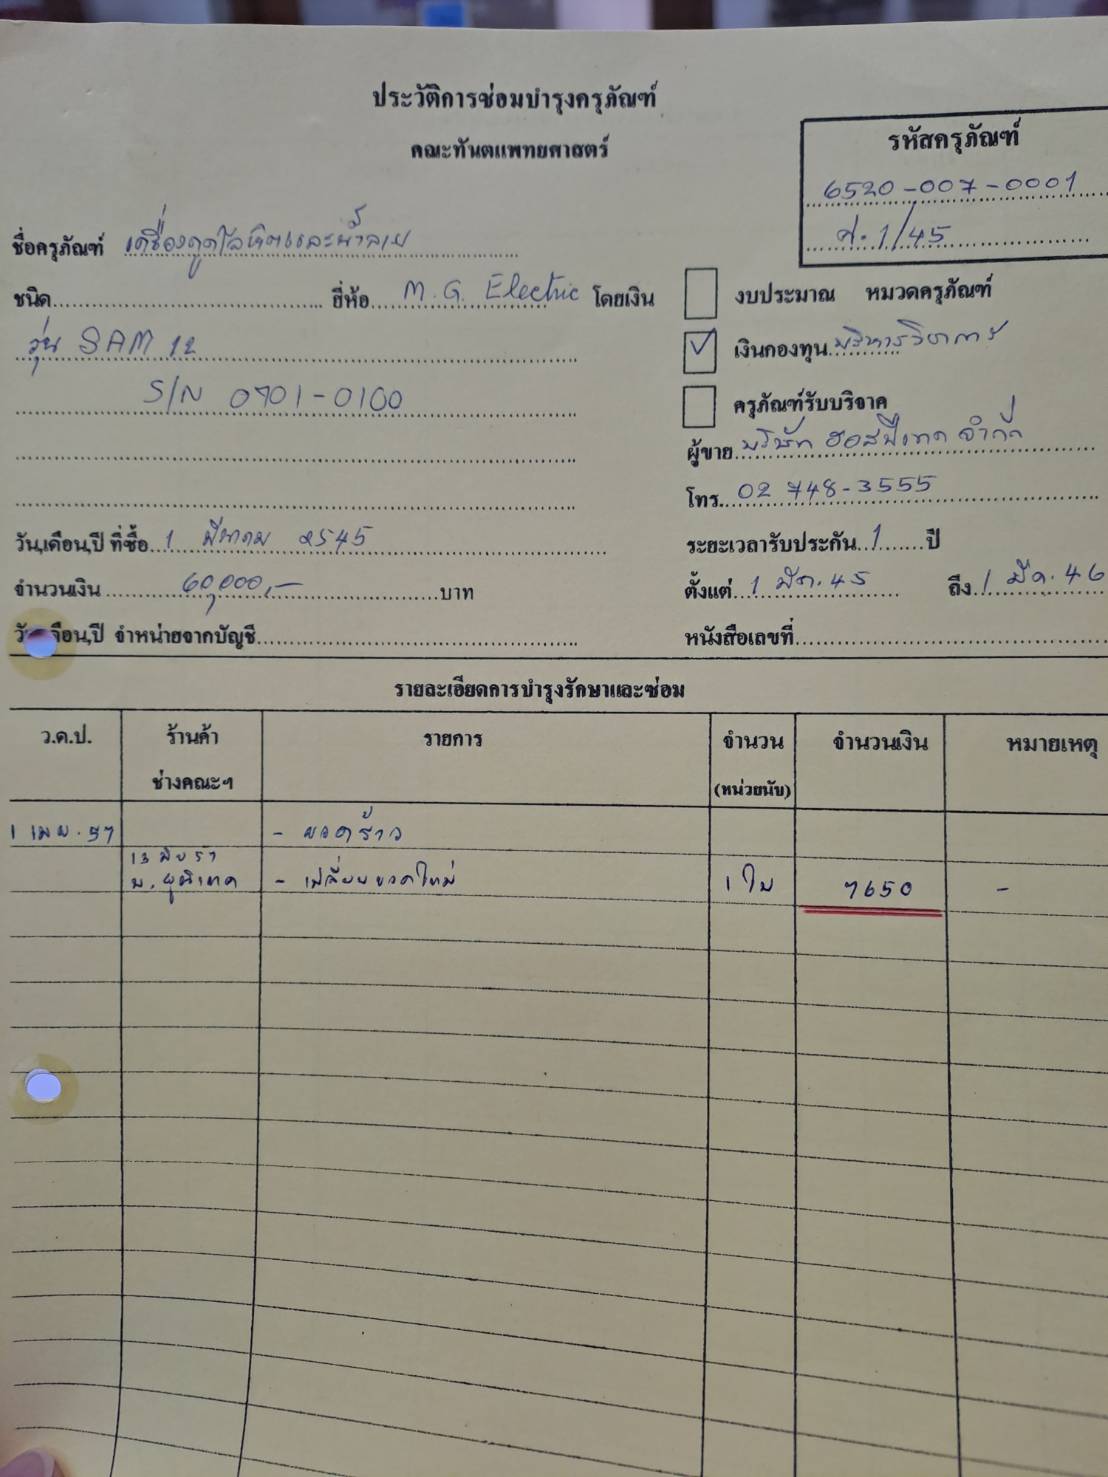 ประวัติการซ่อมบำรุงครุภัณฑ์
คณะทันตแพทยศาสตร์
รหัสครุภัณฑ์
6520-007-0001
ศ.1/45
ชื่อครุภัณฑ์ เครื่องดูดโลหิตและน้ำลาย
ชนิด ยี่ห้อ M.G. Electric โดยเงิน งบประมาณ หมวดครุภัณฑ์
รุ่น SAM 12 เงินกองทุน บริหารวิชาการ
S/N 0701-0100 ครุภัณฑ์รับบริจาค
ผู้ขาย บริษัท ฮอสปิเทค จำกัด
โทร. 02 748-3555
วัน,เดือน,ปี ที่ซื้อ 1 มีนาคม 2545 ระยะเวลารับประกัน 1 ปี
จำนวนเงิน 60,000,- บาท ตั้งแต่ 1 มีค. 45 ถึง 1 มีค. 46
วันเดือน,ปี จำหน่ายจากบัญชี หนังสือเลขที่
รายละเอียดการบำรุงรักษาและซ่อม
ว.ด.ป. ร้านค้า รายการ จำนวน จำนวนเงิน หมายเหตุ
ช่างคณะฯ (หน่วยนับ)
1 เมย. 57 - ขวดร้าว
13 มิย 57
- เปลี่ยนขวดใหม่ 1 ใบ 7650 -